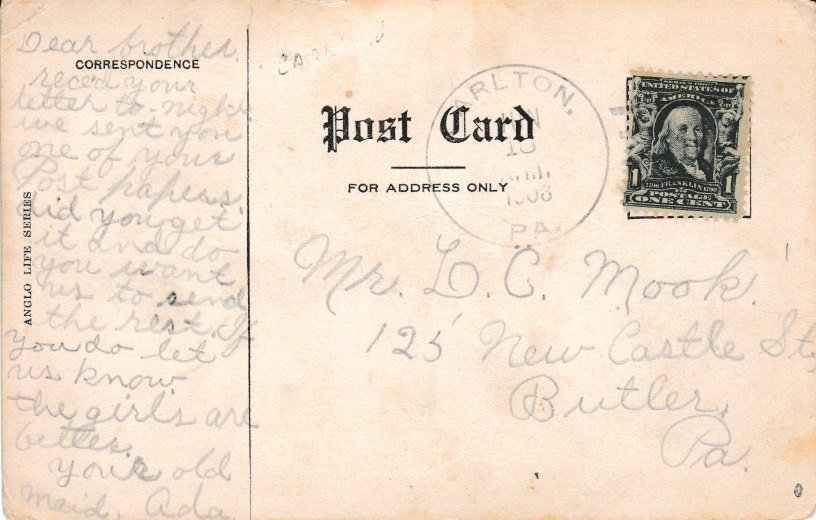 Dear brother.
CORRESPONDENCE
rece'd your
letter to-night
we sent you
one of your
Post papers
did you get
it and do
you want
us to send
the rest. If
you do let
us know.
the girls are
better.
your old
maid, Ada
ANGLO LIFE SERIES
Post Card
FOR ADDRESS ONLY
ARLTON,
18
1908
PA.
SERIES 1902
UNITED STATES OF
AMERICA
1706 FRANKLIN 1790
1 1
POSTAGE
ONE CENT
Mr. L. C. Mook.
125 New Castle St,
Butler,
Pa.